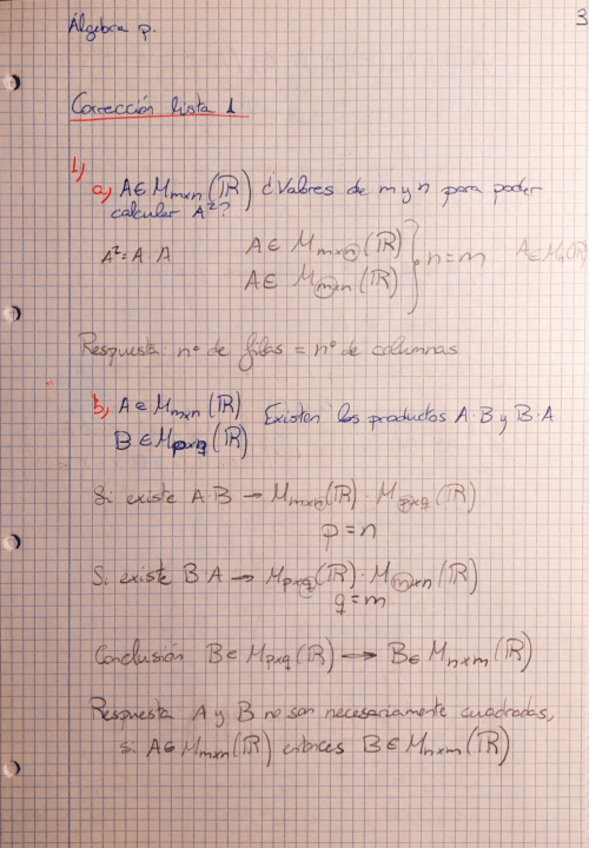 Álgebra p.
3
Corrección lista 1
1)
a) A∈M_{m×n}(ℝ) ¿Valores de m y n para poder
calcular A²?
A²=A·A
A∈M_{m×n}(ℝ)
A∈M_{m×n}(ℝ)
} n=m
Respuesta: nº de filas = nº de columnas
b) A∈M_{m×n}(ℝ) Existen los productos A·B y B·A
B∈M_{p×q}(ℝ)
Si existe A·B → M_{m×n}(ℝ)·M_{p×q}(ℝ)
p=n
Si existe B·A → M_{p×q}(ℝ)·M_{m×n}(ℝ)
q=m
Conclusión B∈M_{p×q}(ℝ) → B∈M_{n×m}(ℝ)
Respuesta A y B no son necesariamente cuadradas,
si A∈M_{m×n}(ℝ) entonces B∈M_{n×m}(ℝ)